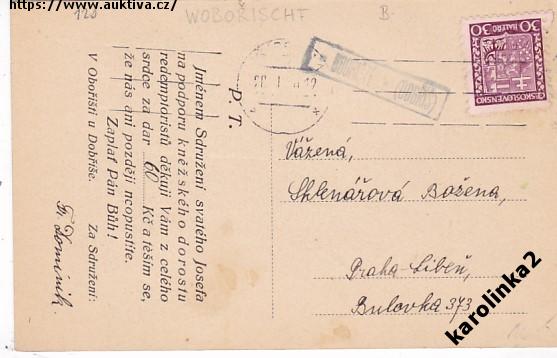 https://www.auktiva.cz/
128
WOBOŘISCHT
B.
30 HALÉŘŮ 30
ČESKOSLOVENSKO
P. T.
Jménem Sdružení svatého Josefa
na podporu kněžského dorostu
redemptoristů děkuji Vám z celého
srdce za dar 60 Kč a těším se,
že nás ani později neopustíte.
Zaplať Pán Bůh!
V Obořišti u Dobříše. Za Sdružení:
Fr. Dominik.
Vážená,
Sklenářová Božena,
Praha-Libeň,
Bulovka 373
karolinka2